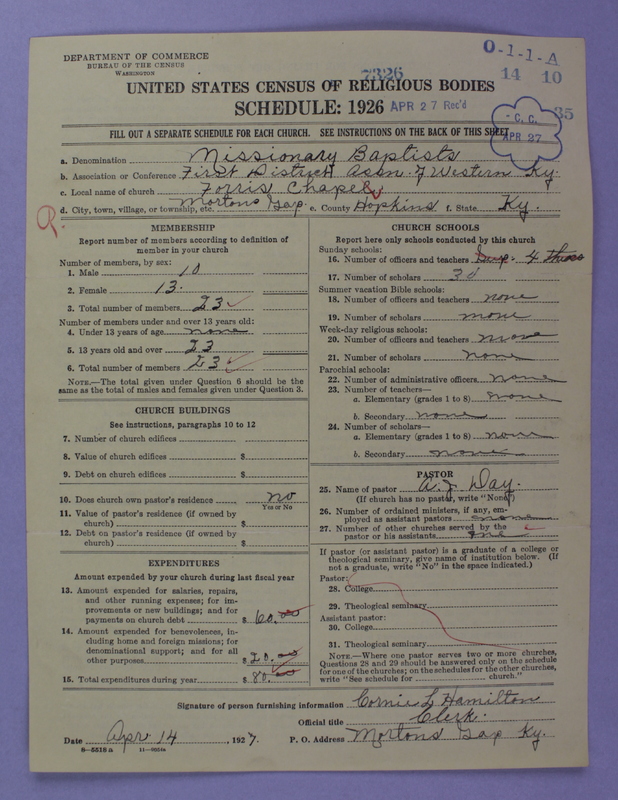 DEPARTMENT OF COMMERCE
BUREAU OF THE CENSUS
WASHINGTON
O-1-1-A
7326
14 10
UNITED STATES CENSUS OF RELIGIOUS BODIES
SCHEDULE: 1926 APR 27 Rec'd
35
C. C.
APR 27
FILL OUT A SEPARATE SCHEDULE FOR EACH CHURCH. SEE INSTRUCTIONS ON THE BACK OF THIS SHEET
a. Denomination Missionary Baptists
b. Association or Conference First District Assn. of Western Ky.
c. Local name of church Forris Chapel
d. City, town, village, or township, etc. Mortons Gap e. County Hopkins f. State Ky.
MEMBERSHIP
Report number of members according to definition of member in your church
Number of members, by sex:
1. Male 10
2. Female 13.
3. Total number of members 23
Number of members under and over 13 years old:
4. Under 13 years of age none
5. 13 years old and over 23
6. Total number of members 23
NOTE.—The total given under Question 6 should be the same as the total of males and females given under Question 3.
CHURCH BUILDINGS
See instructions, paragraphs 10 to 12
7. Number of church edifices
8. Value of church edifices $
9. Debt on church edifices $
10. Does church own pastor's residence no
Yes or No
11. Value of pastor's residence (if owned by church) $
12. Debt on pastor's residence (if owned by church) $
EXPENDITURES
Amount expended by your church during last fiscal year
13. Amount expended for salaries, repairs, and other running expenses; for improvements or new buildings; and for payments on church debt $ 60.00
14. Amount expended for benevolences, including home and foreign missions; for denominational support; and for all other purposes $ 20.00
15. Total expenditures during year $ 80.00
CHURCH SCHOOLS
Report here only schools conducted by this church
Sunday schools:
16. Number of officers and teachers 4
17. Number of scholars 30
Summer vacation Bible schools:
18. Number of officers and teachers none
19. Number of scholars none
Week-day religious schools:
20. Number of officers and teachers none
21. Number of scholars none
Parochial schools:
22. Number of administrative officers none
23. Number of teachers—
a. Elementary (grades 1 to 8) none
b. Secondary none
24. Number of scholars—
a. Elementary (grades 1 to 8) none
b. Secondary none
PASTOR
25. Name of pastor A. J. Day.
(If church has no pastor, write "None")
26. Number of ordained ministers, if any, employed as assistant pastors none
27. Number of other churches served by the pastor or his assistants one
If pastor (or assistant pastor) is a graduate of a college or theological seminary, give name of institution below. (If not a graduate, write "No" in the space indicated.)
Pastor:
28. College
29. Theological seminary
Assistant pastor:
30. College
31. Theological seminary
NOTE.—Where one pastor serves two or more churches, Questions 28 and 29 should be answered only on the schedule for one of the churches; on the schedules for the other churches, write "See schedule for ........ church."
Signature of person furnishing information Cornie L Hamilton
Official title Clerk.
Date Apr 14, 1927. P. O. Address Mortons Gap Ky.
8-5518 a